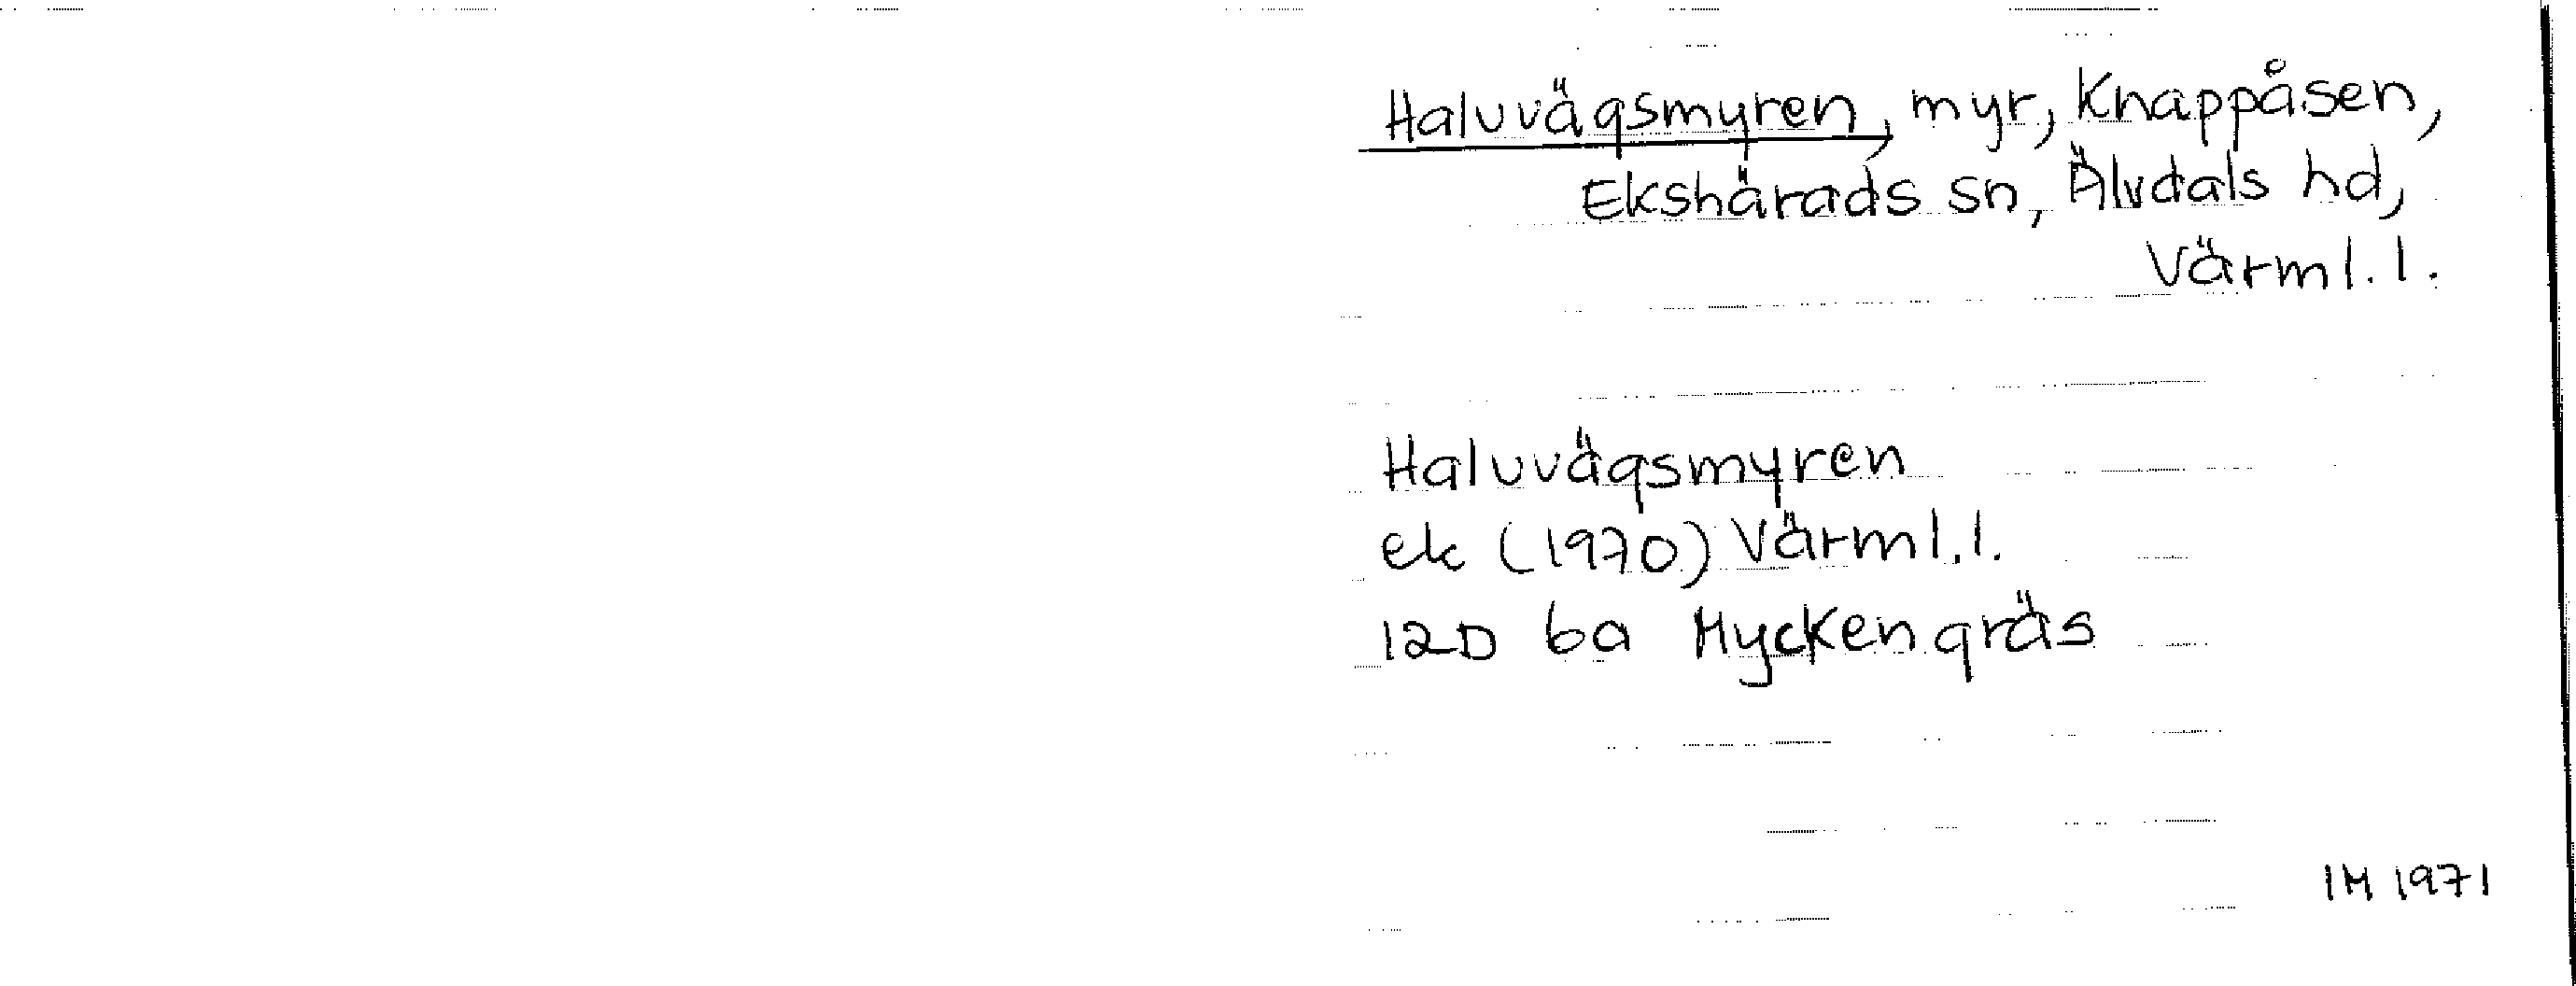 Haluvägsmyren, myr, Knappåsen,
Ekshärads sn, Älvdals hd,
Värml. l.
Haluvägsmyren
ek (1970) Värml. l.
12D 6a Myckengräs
IM 1971